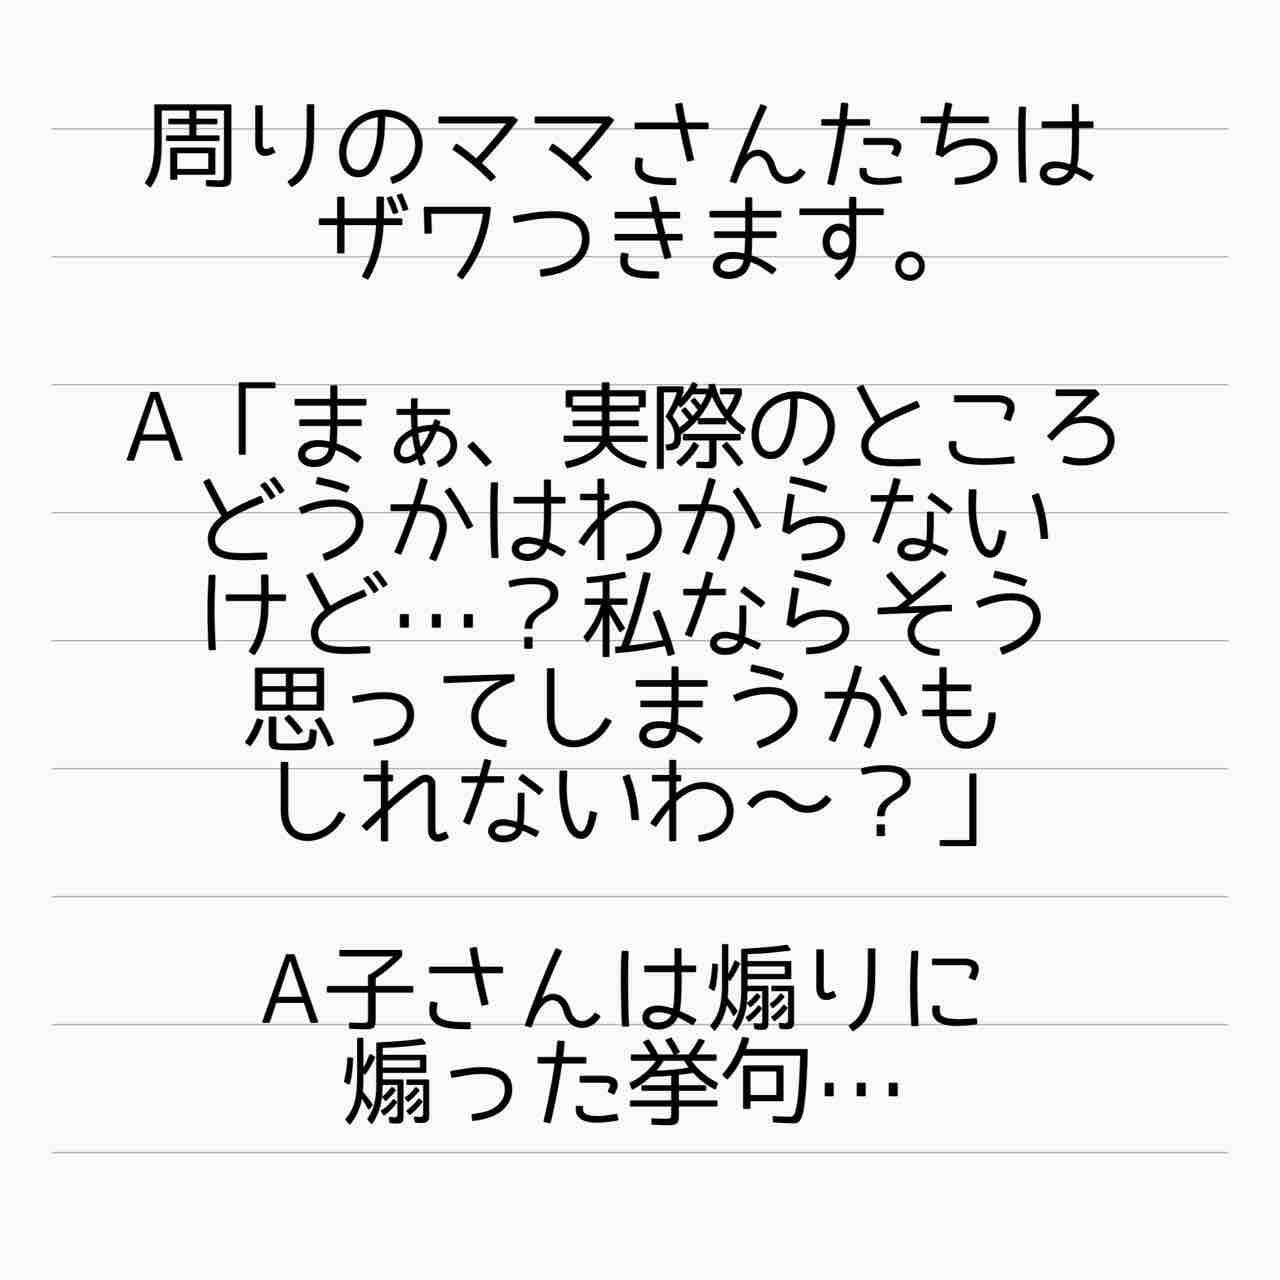 周りのママさんたちは
ザワつきます。
A「まぁ、実際のところ
どうかはわからない
けど…？私ならそう
思ってしまうかも
しれないわ～？」
A子さんは煽りに
煽った挙句…